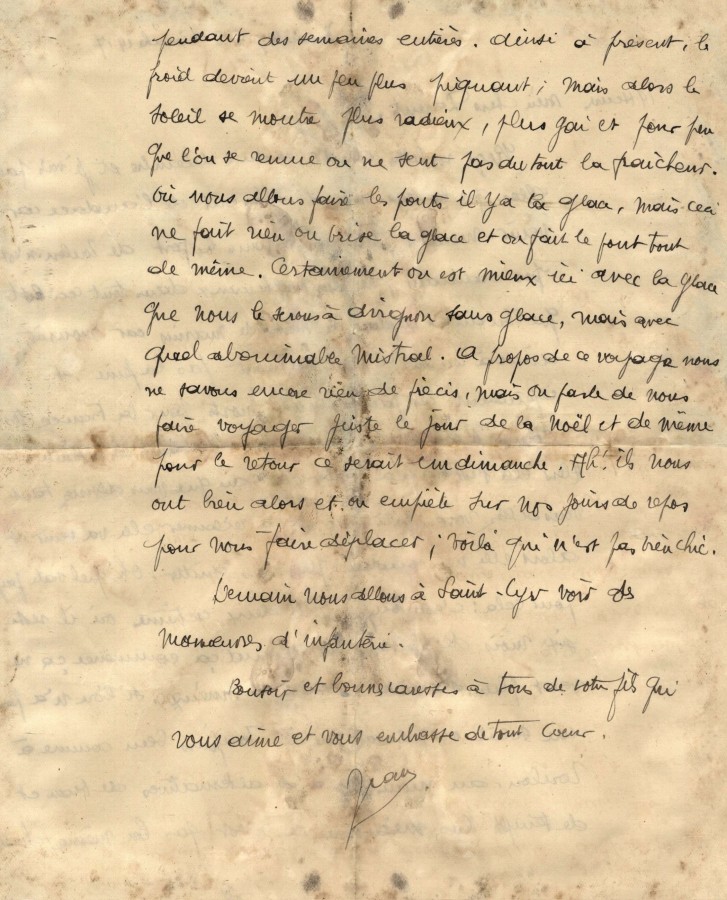 pendant des semaines entières. Ainsi à présent, le
froid devient un peu plus piquant ; mais alors le
soleil se montre plus radieux, plus gai et pour peu
que l'on se remue on ne sent pas du tout la fraîcheur.
Où nous allons faire les ponts il y a la glace, mais ceci
ne fait rien on brise la glace et on fait le pont tout
de même. Certainement on est mieux ici avec la glace
que nous le serons à Avignon sans glace, mais avec
quel abominable Mistral. A propos de ce voyage nous
ne savons encore rien de précis, mais on parle de nous
faire voyager juste le jour de la Noël et de même
pour le retour ce serait un dimanche. Ah! ils nous
ont bien alors et on empiète sur nos jours de repos
pour nous faire déplacer ; voilà qui n'est pas bien chic.
Demain nous allons à Saint-Cyr voir des
manœuvres d'infanterie.
Bonsoir et bonnes caresses à tous de votre fils qui
vous aime et vous embrasse de tout coeur.
Jean